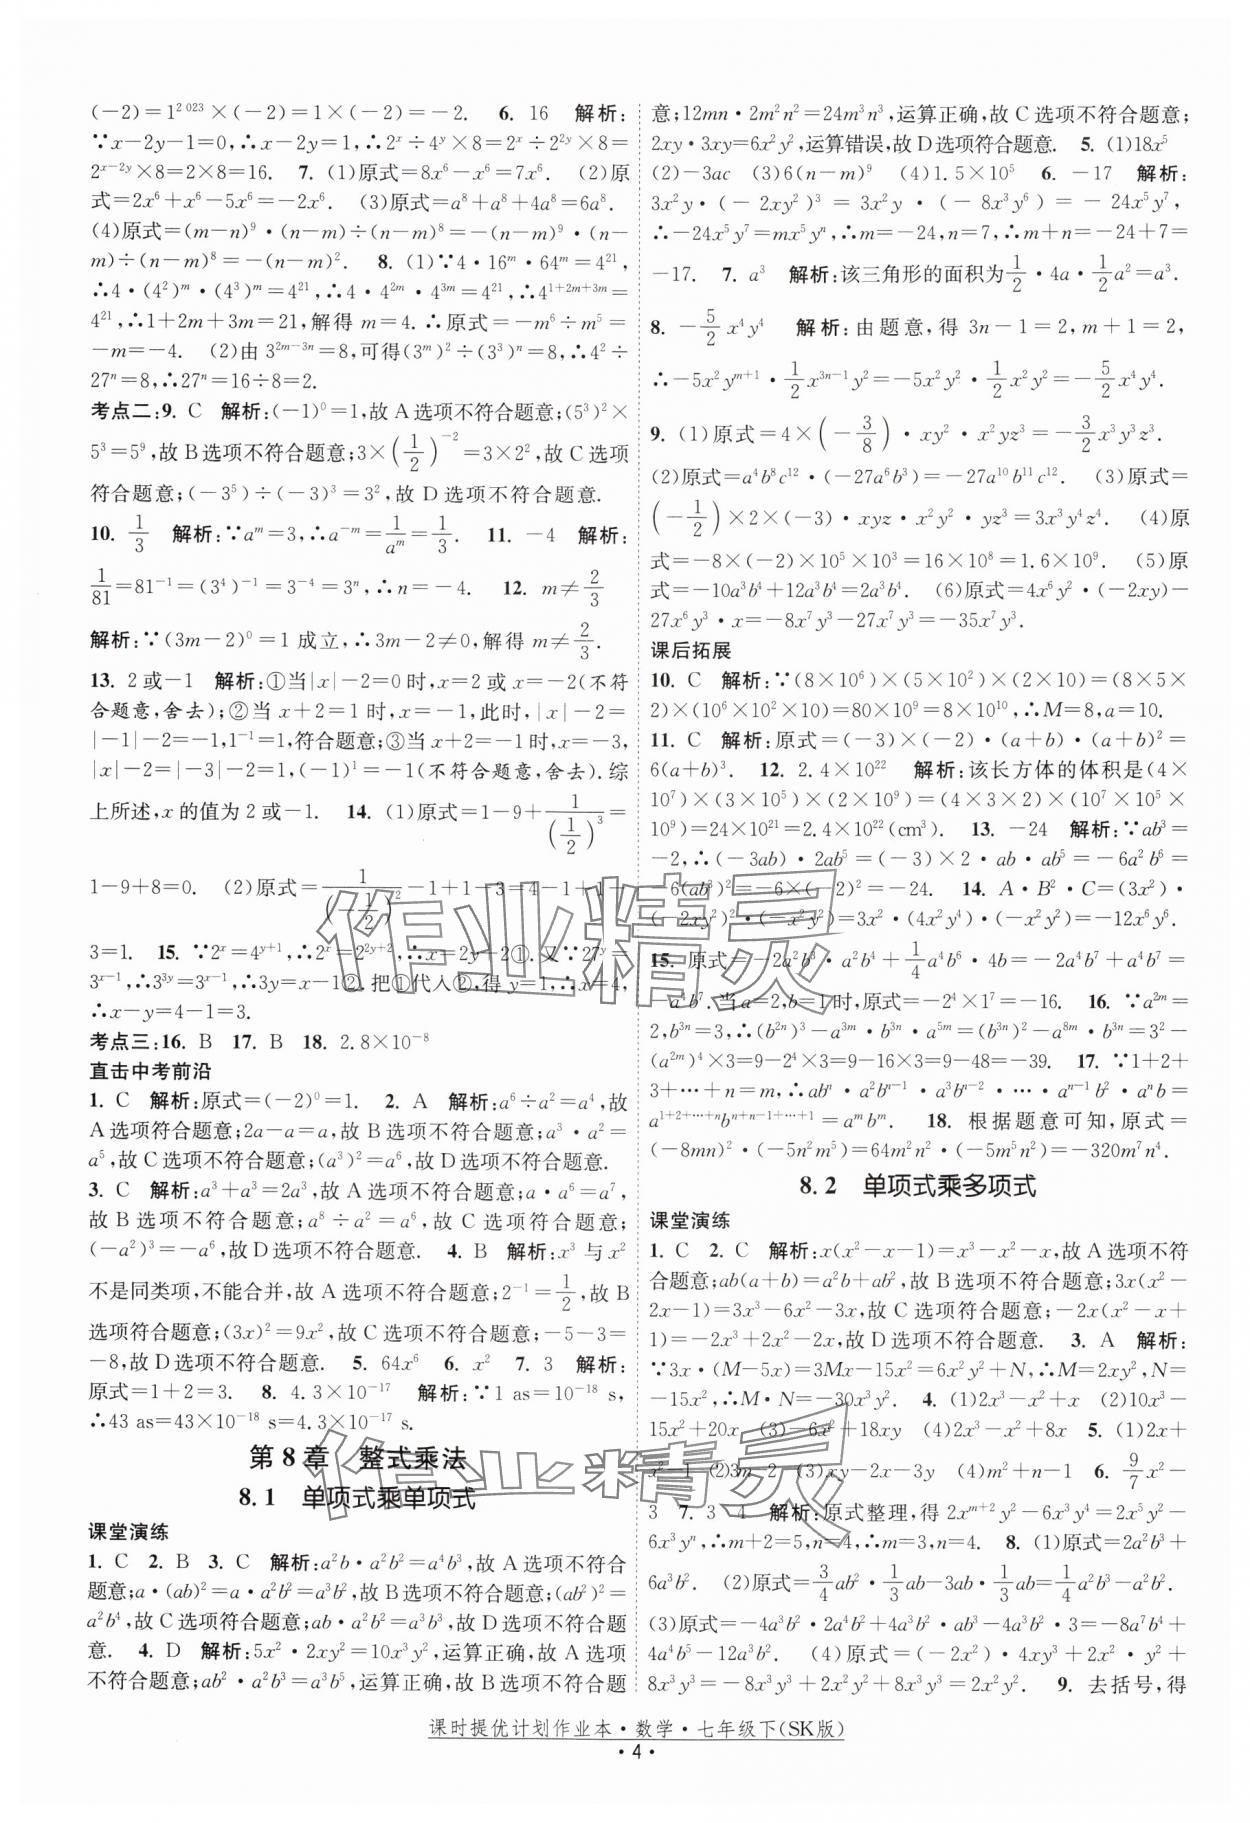 (-2)=1^{2 023}×(-2)=1×(-2)=-2. 6. 16 解析:
∵x-2y-1=0,∴x-2y=1,∴2^x÷4^y×8=2^x÷2^{2y}×8=
2^{x-2y}×8=2×8=16. 7. (1)原式=8x^6-x^6=7x^6. (2)原
式=2x^6+x^6-5x^6=-2x^6. (3)原式=a^8+a^8+4a^8=6a^8.
(4)原式=(m-n)^9·(n-m)÷(n-m)^8=-(n-m)^9·(n-
m)÷(n-m)^8=-(n-m)^2. 8. (1)∵4·16^m·64^m=4^{21},
∴4·(4^2)^m·(4^3)^m=4^{21},∴4·4^{2m}·4^{3m}=4^{21},∴4^{1+2m+3m}=
4^{21},∴1+2m+3m=21,解得 m=4.∴原式=-m^6÷m^5=
-m=-4. (2)由 3^{2m-3n}=8,可得(3^m)^2÷(3^3)^n=8,∴4^2÷
27^n=8,∴27^n=16÷8=2.
考点二:9. C 解析:(-1)^0=1,故 A 选项不符合题意;(5^3)^2×
5^3=5^9,故 B 选项不符合题意;3×(1/2)^{-2}=3×2^2,故 C 选项
符合题意;(-3^5)÷(-3)^3=3^2,故 D 选项不符合题意.
10. 1/3 解析:∵a^m=3,∴a^{-m}=1/a^m=1/3. 11. -4 解析:
1/81=81^{-1}=(3^4)^{-1}=3^{-4}=3^n,∴n=-4. 12. m≠2/3
解析:∵(3m-2)^0=1 成立,∴3m-2≠0,解得 m≠2/3.
13. 2 或-1 解析:①当|x|-2=0 时,x=2 或 x=-2(不符
合题意,舍去);②当 x+2=1 时,x=-1,此时,|x|-2=
|-1|-2=-1,1^{-1}=1,符合题意;③当 x+2=-1 时,x=-3,
|x|-2=|-3|-2=1,(-1)^1=-1(不符合题意,舍去).综
上所述,x 的值为 2 或-1. 14. (1)原式=1-9+1/(1/2)^3=
1-9+8=0. (2)原式=1/(-1/2)^2-1+1-3=4-1+1-
3=1. 15. ∵2^x=4^{y+1},∴2^x=2^{2y+2},∴x=2y-2①.又∵27^y=
3^{x-1},∴3^{3y}=3^{x-1},∴3y=x-1②.把①代入②,得 y=1,∴x=4,
∴x-y=4-1=3.
考点三:16. B 17. B 18. 2.8×10^{-8}
直击中考前沿
1. C 解析:原式=(-2)^0=1. 2. A 解析:a^6÷a^2=a^4,故
A 选项符合题意;2a-a=a,故 B 选项不符合题意;a^3·a^2=
a^5,故 C 选项不符合题意;(a^3)^2=a^6,故 D 选项不符合题意.
3. C 解析:a^3+a^3=2a^3,故 A 选项不符合题意;a·a^6=a^7,
故 B 选项不符合题意;a^8÷a^2=a^6,故 C 选项符合题意;
(-a^2)^3=-a^6,故 D 选项不符合题意. 4. B 解析:x^3 与 x^2
不是同类项,不能合并,故 A 选项不符合题意;2^{-1}=1/2,故 B
选项符合题意;(3x)^2=9x^2,故 C 选项不符合题意;-5-3=
-8,故 D 选项不符合题意. 5. 64x^6 6. x^2 7. 3 解析:
原式=1+2=3. 8. 4.3×10^{-17} 解析:∵1 as=10^{-18} s,
∴43 as=43×10^{-18} s=4.3×10^{-17} s.
第 8 章 整式乘法
8.1 单项式乘单项式
课堂演练
1. C 2. B 3. C 解析:a^2b·a^2b^2=a^4b^3,故 A 选项不符合
题意;a·(ab)^2=a·a^2b^2=a^3b^2,故 B 选项不符合题意;(ab^2)^2=
a^2b^4,故 C 选项符合题意;ab·a^2b^2=a^3b^3,故 D 选项不符合题
意. 4. D 解析:5x^2·2xy^2=10x^3y^2,运算正确,故 A 选项
不符合题意;ab^2·a^2b^3=a^3b^5,运算正确,故 B 选项不符合题
意;12mn·2m^2n^2=24m^3n^3,运算正确,故 C 选项不符合题意;
2xy·3xy=6x^2y^2,运算错误,故 D 选项符合题意. 5. (1)18x^5
(2)-3ac (3)6(n-m)^9 (4)1.5×10^5 6. -17 解析:
3x^2y·(-2xy^2)^3=3x^2y·(-8x^3y^6)=-24x^5y^7,
∴-24x^5y^7=mx^5y^n,∴m=-24,n=7,∴m+n=-24+7=
-17. 7. a^3 解析:该三角形的面积为1/2·4a·1/2a^2=a^3.
8. -5/2x^4y^4 解析:由题意,得 3n-1=2,m+1=2,
∴-5x^2y^{m+1}·1/2x^{3n-1}y^2=-5x^2y^2·1/2x^2y^2=-5/2x^4y^4.
9. (1)原式=4×(-3/8)·xy^2·x^2yz^3=-3/2x^3y^3z^3.
(2)原式=a^4b^8c^{12}·(-27a^6b^3)=-27a^{10}b^{11}c^{12}. (3)原式=
(-1/2)×2×(-3)·xyz·x^2y^2·yz^3=3x^3y^4z^4. (4)原
式=-8×(-2)×10^5×10^3=16×10^8=1.6×10^9. (5)原
式=-10a^3b^4+12a^3b^4=2a^3b^4. (6)原式=4x^6y^2·(-2xy)-
27x^6y^3·x=-8x^7y^3-27x^7y^3=-35x^7y^3.
课后拓展
10. C 解析:∵(8×10^6)×(5×10^2)×(2×10)=(8×5×
2)×(10^6×10^2×10)=80×10^9=8×10^{10},∴M=8,a=10.
11. C 解析:原式=(-3)×(-2)·(a+b)·(a+b)^2=
6(a+b)^3. 12. 2.4×10^{22} 解析:该长方体的体积是(4×
10^7)×(3×10^5)×(2×10^9)=(4×3×2)×(10^7×10^5×
10^9)=24×10^{21}=2.4×10^{22}(cm^3). 13. -24 解析:∵ab^3=
-2,∴(-3ab)·2ab^5=(-3)×2·ab·ab^5=-6a^2b^6=
-6(ab^3)^2=-6×(-2)^2=-24. 14. A·B^2·C=(3x^2)·
(-2xy^2)^2·(-x^2y^2)=3x^2·(4x^2y^4)·(-x^2y^2)=-12x^6y^6.
15. 原式=-2a^2b^3·a^2b^4+1/4a^4b^6·4b=-2a^4b^7+a^4b^7=
-a^4b^7.当 a=2,b=1 时,原式=-2^4×1^7=-16. 16. ∵a^{2m}=
2,b^{3n}=3,∴(b^{2n})^3-a^{3m}·b^{3n}·a^{5m}=(b^{3n})^2-a^{8m}·b^{3n}=3^2-
(a^{2m})^4×3=9-2^4×3=9-16×3=9-48=-39. 17. ∵1+2+
3+···+n=m,∴ab^n·a^2b^{n-1}·a^3b^{n-2}····a^{n-1}b^2·a^nb=
a^{1+2+···+n}b^{n+n-1+···+1}=a^mb^m. 18. 根据题意可知,原式=
(-8mn)^2·(-5n^2m^5)=64m^2n^2·(-5m^5n^2)=-320m^7n^4.
8.2 单项式乘多项式
课堂演练
1. C 2. C 解析:x(x^2-x-1)=x^3-x^2-x,故 A 选项不符
合题意;ab(a+b)=a^2b+ab^2,故 B 选项不符合题意;3x(x^2-
2x-1)=3x^3-6x^2-3x,故 C 选项符合题意;-2x(x^2-x+
1)=-2x^3+2x^2-2x,故 D 选项不符合题意. 3. A 解析:
∵3x·(M-5x)=3Mx-15x^2=6x^2y^2+N,∴M=2xy^2,N=
-15x^2,∴M·N=-30x^3y^2. 4. (1)2x^3-x^2+x (2)10x^3-
15x^2+20x (3)-6x^2+18xy (4)2x^3-x^2+8x 5. (1)2x+
x^2-1 (2)3n-2 (3)xy-2x-3 (4)m^2+n-1 6. 9/7x^2-
3 7. 3 4 解析:原式整理,得 2x^{m+2}y^2-6x^3y^n=2x^5y^2-
6x^3y^n,∴m+2=5,n=4,∴m=3,n=4. 8. (1)原式=2a^2b^2+
6a^3b^2. (2)原式=3/4ab^2·1/3ab-3ab·1/3ab=1/4a^2b^3-a^2b^2.
(3)原式=-4a^3b^2·2a^4b^2+4a^3b^2·ab^3-4a^3b^2·3=-8a^7b^4+
4a^4b^5-12a^3b^2. (4)原式=(-2x^2)·4xy^3+2x^2·y^2+
8x^3y^3=-8x^3y^3+2x^2y^2+8x^3y^3=2x^2y^2. 9. 去括号,得
作业精灵
作业精灵
课时提优计划作业本·数学·七年级下(SK版)
·4·